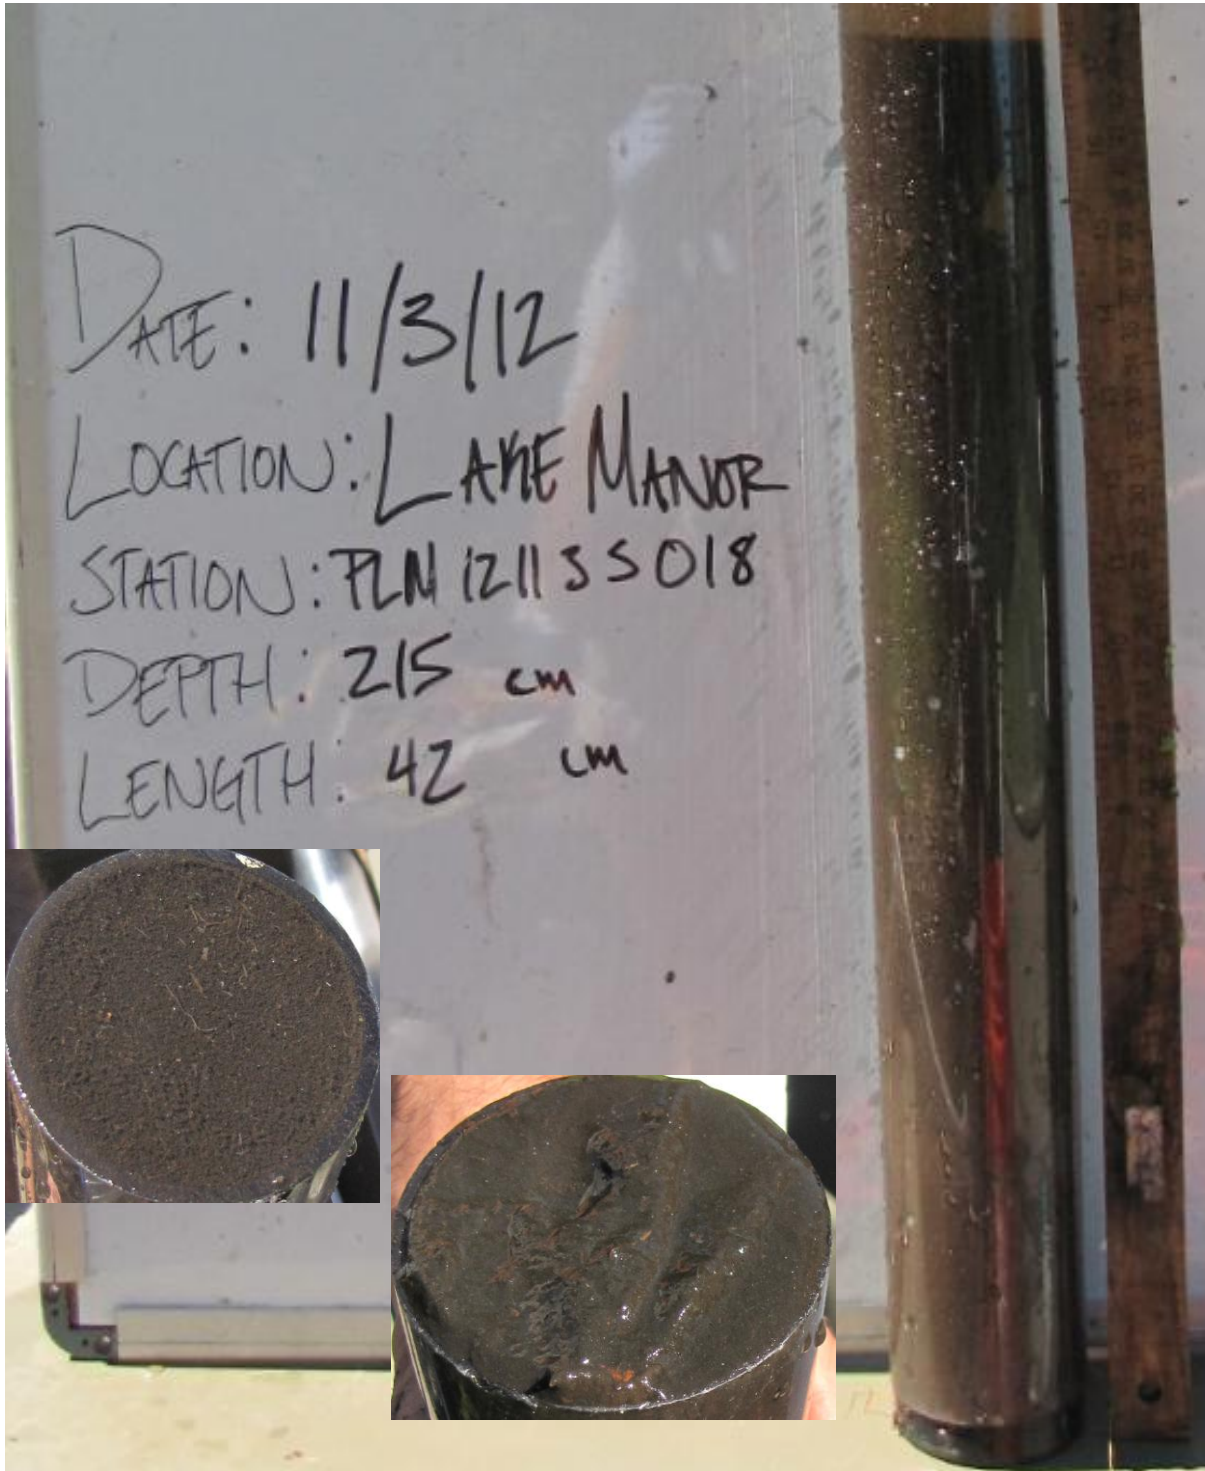 DATE: 11/3/12
LOCATION: LAKE MANOR
STATION: PLN12113S018
DEPTH: 215 cm
LENGTH: 42 cm